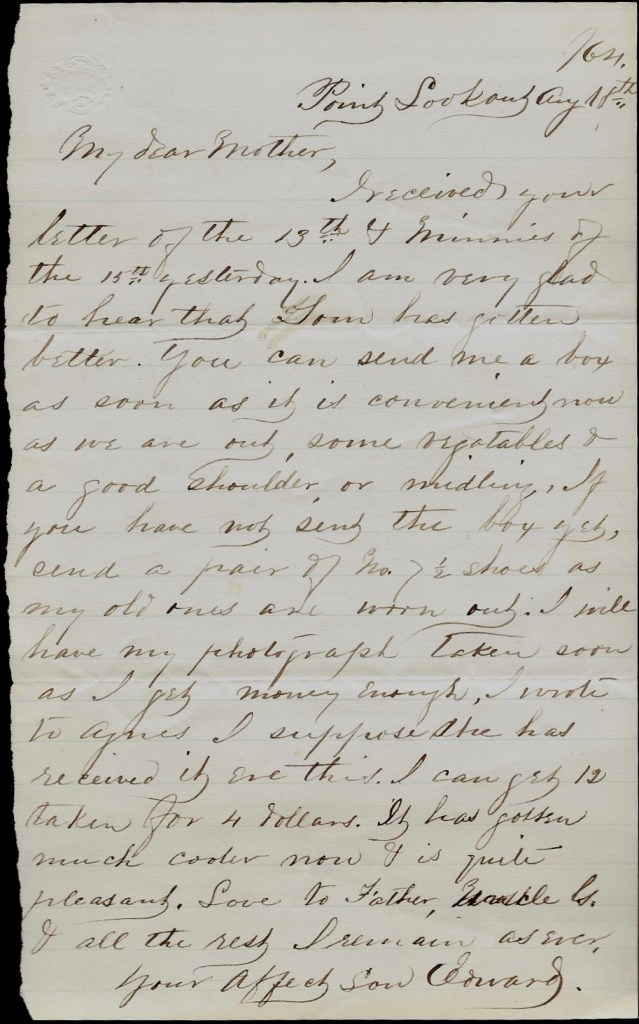 /64.
Point Lookout Aug 18th
My dear Mother,
I received your
letter of the 13th & Minnies of
the 15th yesterday. I am very glad
to hear that Tom has gotten
better. You can send me a box
as soon as it is convenient now
as we are out, some vegatables &
a good shoulder or midling, If
you have not sent the box yet,
send a pair of No. 7 1/2 shoes as
my old ones are worn out. I will
have my photograph taken soon
as I get money enough, I wrote
to Agnes I suppose she has
received it ere this. I can get 12
taken for 4 dollars. It has gotten
much cooler now & is quite
pleasant. Love to Father, Uncle G.
& all the rest I remain as ever,
Your Affect Son Edward.